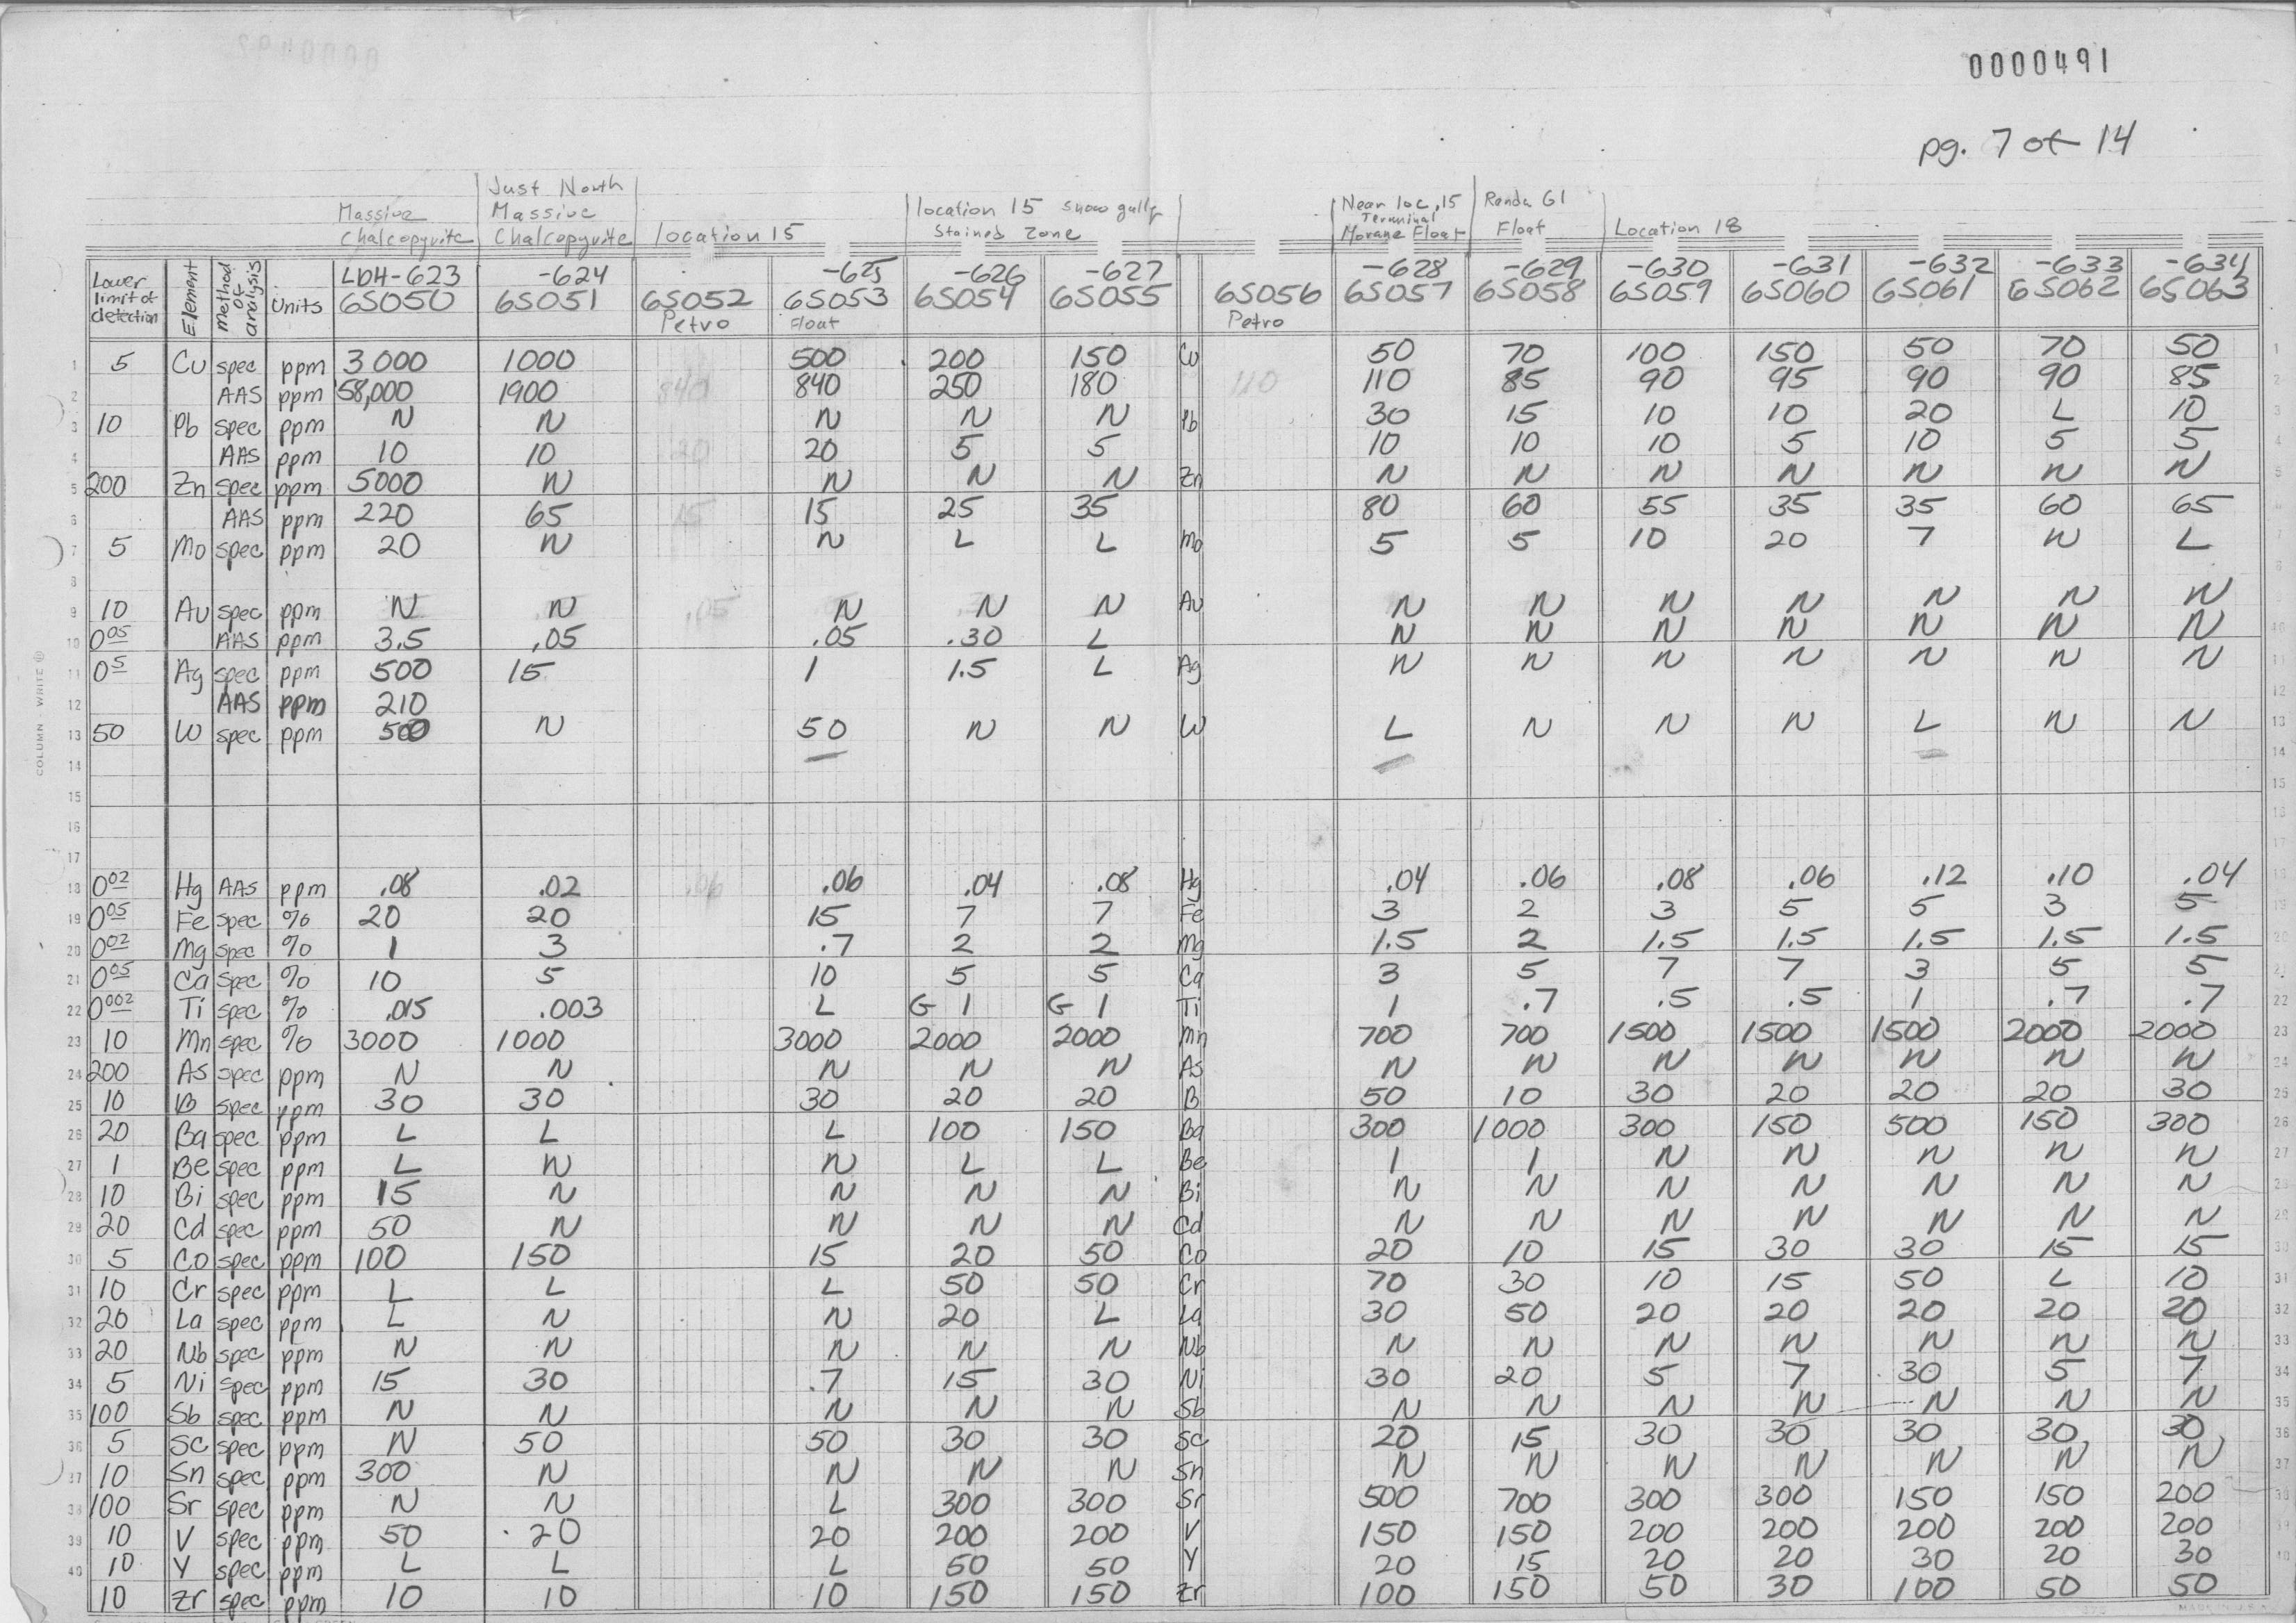 0000491
pg. 7 of 14
Massive Chalcopyrite | Just North Massive Chalcopyrite | location 15 | location 15 snow gully Stained Zone | Near loc. 15 Terminal Morane Float | Renda Gl Float | Location 18
Lower limit of detection | Element | Method of analysis | Units | LDH-623 6S050 | -624 6S051 | 6S052 Petro | -625 6S053 Float | -626 6S054 | -627 6S055 | 6S056 Petro | -628 6S057 | -629 6S058 | -630 6S059 | -631 6S060 | -632 6S061 | -633 6S062 | -634 6S063
1 5 Cu spec ppm 3000 1000 500 200 150 Cu 50 70 100 150 50 70 50 1
2 AAS ppm 58,000 1900 840 840 250 180 110 110 85 90 95 90 90 85 2
3 10 Pb spec ppm N N N N N Pb 30 15 10 10 20 L 10 3
4 AAS ppm 10 10 20 20 5 5 10 10 10 5 10 5 5 4
5 200 Zn spec ppm 5000 N N N N Zn N N N N N N N 5
6 AAS ppm 220 65 15 15 25 35 80 60 55 35 35 60 65
7 5 Mo spec ppm 20 N N L L Mo 5 5 10 20 7 N L 7
8
9 10 Au spec ppm N N .05 N N N Au N N N N N N N
10 0.05 AAS ppm 3.5 .05 .05 .30 L N N N N N N N 10
11 0.5 Ag spec ppm 500 15 1 1.5 L Ag N N N N N N N 11
12 AAS ppm 210 12
13 50 W spec ppm 500 N 50 N N W L N N N L N N 13
14 14
15 15
16
17 17
18 0.02 Hg AAS ppm .08 .02 .06 .06 .04 .08 Hg .04 .06 .08 .06 .12 .10 .04
19 0.05 Fe spec % 20 20 15 7 7 Fe 3 2 3 5 5 3 5 19
20 0.02 Mg spec % 1 3 .7 2 2 Mg 1.5 2 1.5 1.5 1.5 1.5 1.5 20
21 0.05 Ca spec % 10 5 10 5 5 Ca 3 5 7 7 3 5 5 21
22 0.002 Ti spec % .015 .003 L G 1 G 1 Ti 1 .7 .5 .5 1 .7 .7 22
23 10 Mn spec % 3000 1000 3000 2000 2000 Mn 700 700 1500 1500 1500 2000 2000 23
24 200 As spec ppm N N N N N As N N N N N N N 24
25 10 B spec ppm 30 30 30 20 20 B 50 10 30 20 20 20 30 25
26 20 Ba spec ppm L L L 100 150 Ba 300 1000 300 150 500 150 300 26
27 1 Be spec ppm L N N L L Be 1 1 N N N N N 27
28 10 Bi spec ppm 15 N N N N Bi N N N N N N N 28
29 20 Cd spec ppm 50 N N N N Cd N N N N N N N 29
30 5 Co spec ppm 100 150 15 20 50 Co 20 10 15 30 30 15 15 30
31 10 Cr spec ppm L L L 50 50 Cr 70 30 10 15 50 L 10 31
32 20 La spec ppm L N N 20 L La 30 50 20 20 20 20 20 32
33 20 Nb spec ppm N N N N N Nb N N N N N N N 33
34 5 Ni spec ppm 15 30 7 15 30 Ni 30 20 5 7 30 5 7 34
35 100 Sb spec ppm N N N N N Sb N N N N N N N 35
36 5 Sc spec ppm N 50 50 30 30 Sc 20 15 30 30 30 30 30 36
37 10 Sn spec ppm 300 N N N N Sn N N N N N N N 37
38 100 Sr spec ppm N N L 300 300 Sr 500 700 300 300 150 150 200 38
39 10 V spec ppm 50 20 20 200 200 V 150 150 200 200 200 200 200 39
40 10 Y spec ppm L L L 50 50 Y 20 15 20 20 30 20 30 40
10 Zr spec ppm 10 10 10 150 150 Zr 100 150 50 30 100 50 50
COLUMN WRITE